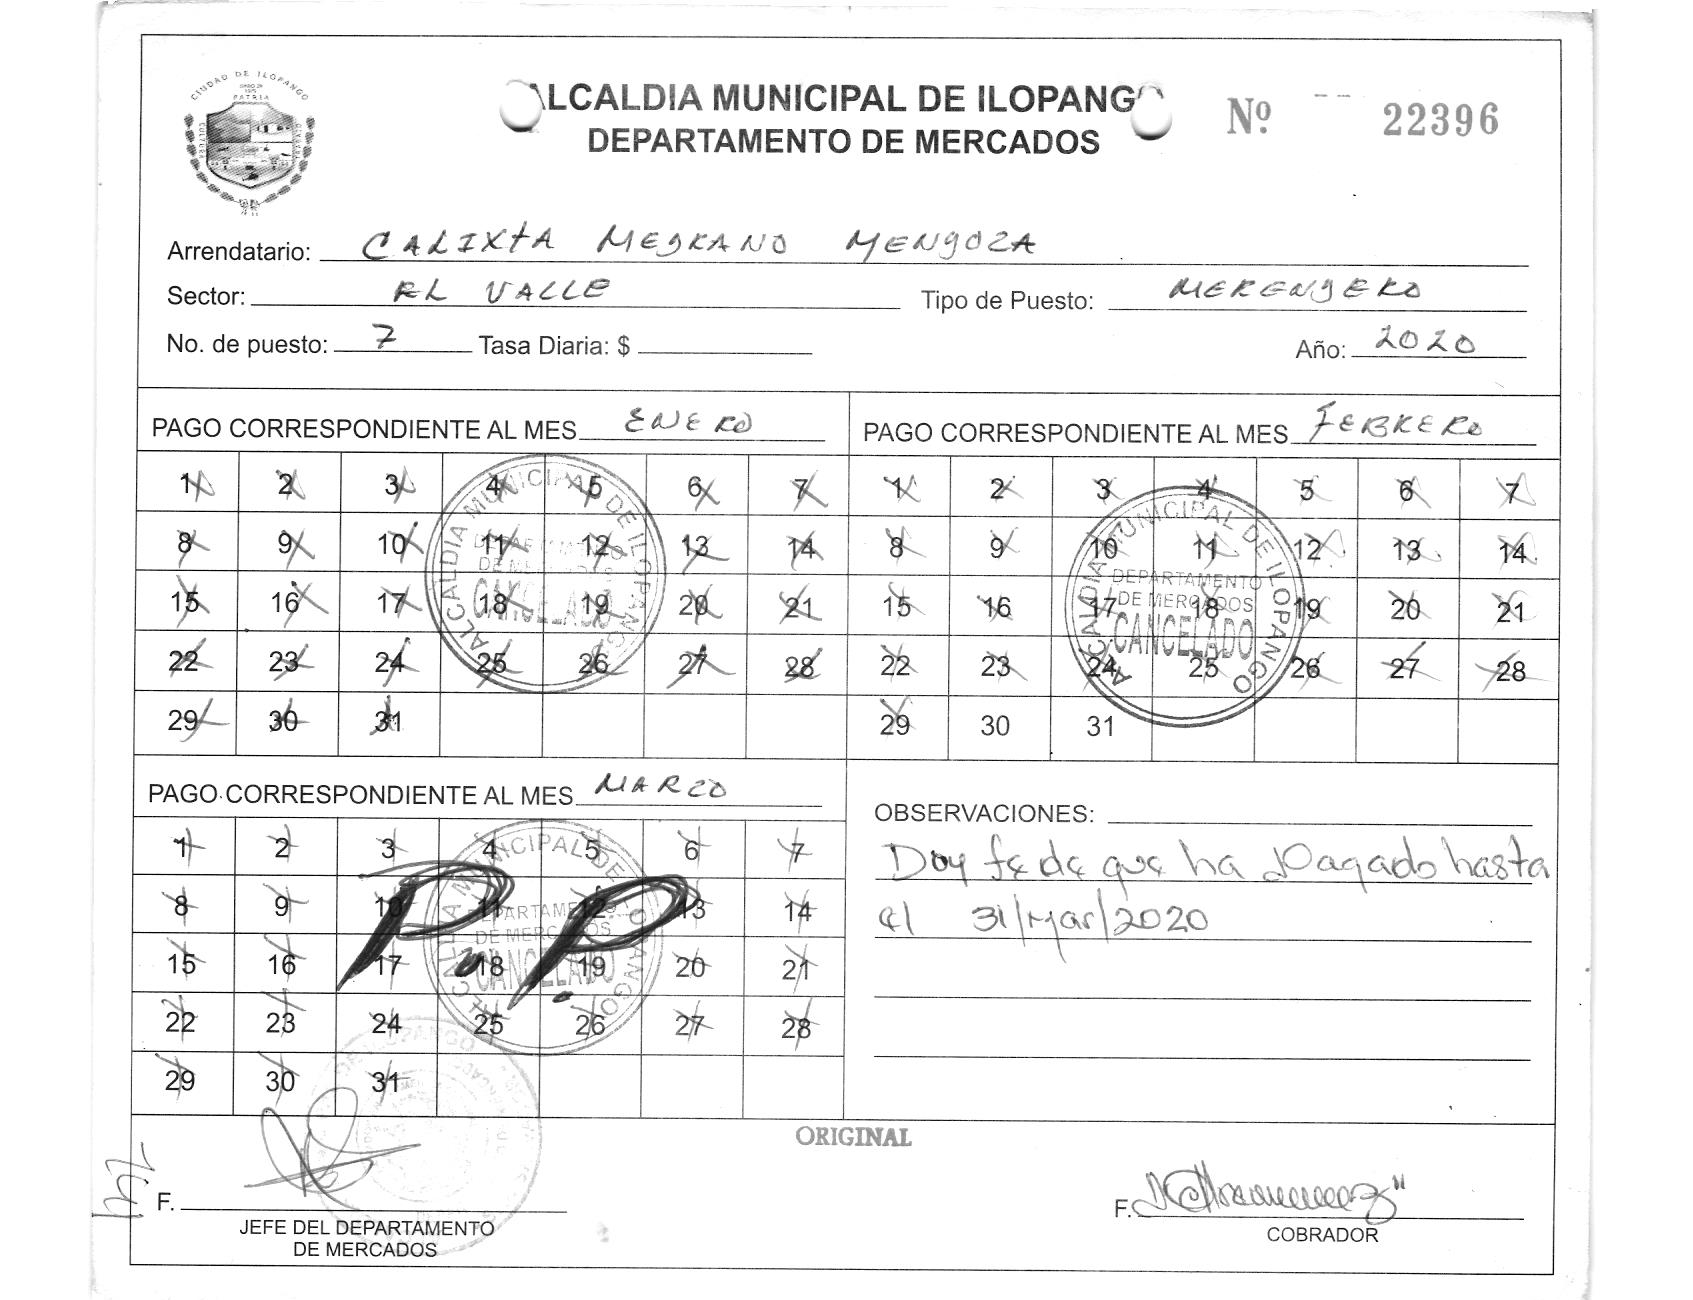 CIUDAD DE ILOPANGO
PATRIA
CULTURA
ALCALDIA MUNICIPAL DE ILOPANGO
Nº 22396
DEPARTAMENTO DE MERCADOS
Arrendatario: CALIXTA MEDRANO MENDOZA
Sector: EL VALLE Tipo de Puesto: MERENDERO
No. de puesto: 7 Tasa Diaria: $ Año: 2020
PAGO CORRESPONDIENTE AL MES ENERO
1 2 3 4 5 6 7
8 9 10 11 12 13 14
15 16 17 18 19 20 21
22 23 24 25 26 27 28
29 30 31
ALCALDIA MUNICIPAL DE ILOPANGO
DEPARTAMENTO
DE MERCADOS
CANCELADO
PAGO CORRESPONDIENTE AL MES FEBRERO
1 2 3 4 5 6 7
8 9 10 11 12 13 14
15 16 17 18 19 20 21
22 23 24 25 26 27 28
29 30 31
ALCALDIA MUNICIPAL DE ILOPANGO
DEPARTAMENTO
DE MERCADOS
CANCELADO
PAGO CORRESPONDIENTE AL MES MARZO
1 2 3 4 5 6 7
8 9 10 11 12 13 14
15 16 17 18 19 20 21
22 23 24 25 26 27 28
29 30 31
ALCALDIA MUNICIPAL DE ILOPANGO
DEPARTAMENTO
DE MERCADOS
CANCELADO
P.P.
OBSERVACIONES:
Doy fe de que ha pagado hasta
el 31/Mar/2020
ORIGINAL
F.
JEFE DEL DEPARTAMENTO
DE MERCADOS
F.
COBRADOR